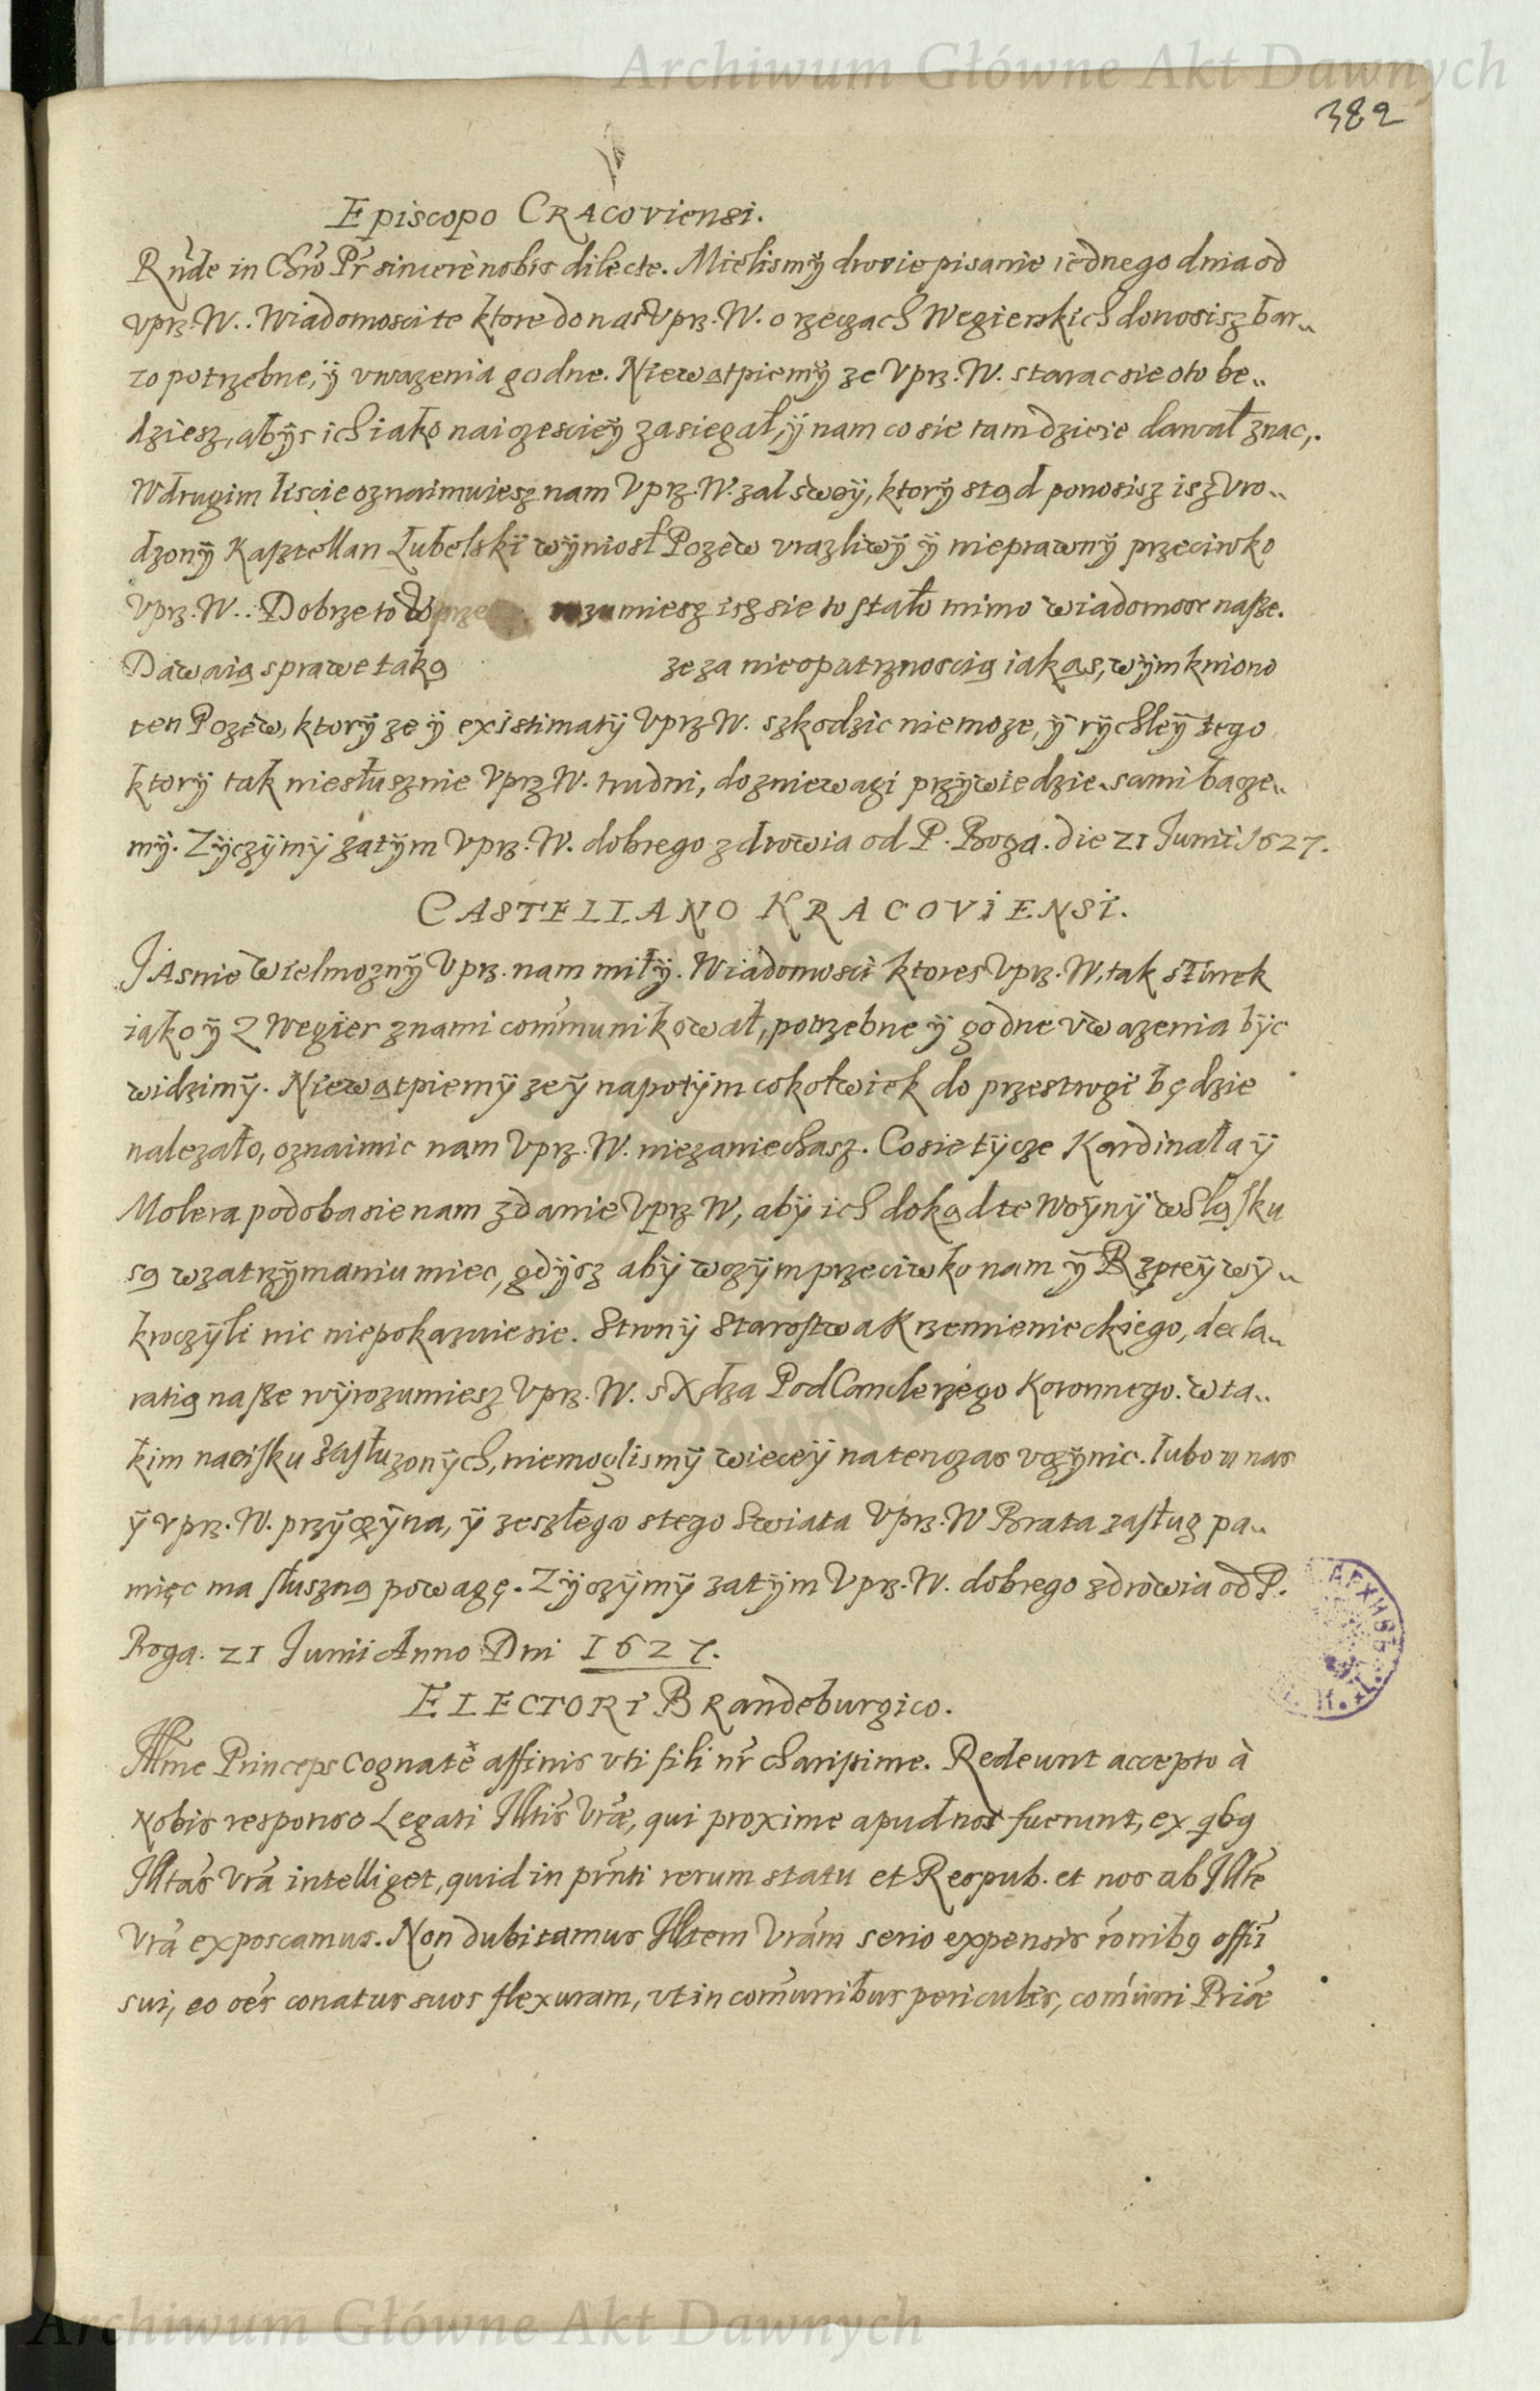 382
Episcopo CRACoviensi.
Rñde in Chro Pr sincere nobis dilecte. Mielismÿ dwoie pisanie iednego dnia od
Vprz. W.. Wiadomosci te ktore do nas Vprz. W. o rzeczach Wegierskich donosisz bar„
zo potrzebne, ÿ vwazenia godne. Niewątpiemÿ ze Vprz. W. starac sie o to be„
dziesz, abÿs ich iako naiczescieÿ zasiegał, ÿ nam co sie tam dzieie dawał znac,.
W drugim liscie oznaimuiesz nam Vprz. W. zal swoÿ, ktorÿ stąd ponosisz isz Vro„
dzonÿ Kasztellan Lubelski wÿniosł Pozew vrazliwÿ ÿ nieprawnÿ przeciwko
Vprz. W.. Dobrze to rozumiesz isz sie to stało mimo wiadomosc nasze.
Dawaią sprawe taką ze za nieopatrznoscią iakąs, wÿmkniono
ten Pozew, ktorÿ ze ÿ existimatÿ Vprz W. szkodzic niemoze, ÿ rÿchleÿ tego
ktorÿ tak niesłusznie Vprz W. trudni, do zniewagi przÿwiedzie, sami bacze„
mÿ. Zÿczÿmÿ zatÿm Vprz. W. dobrego zdrowia od P. Boga. die 21 Junii 1627.
CASTELLANO KRACOVIENSI.
JAsnie Wielmoznÿ Vprz. nam miłÿ. Wiadomosci ktores Vprz. W. tak s Turek
iako ÿ z Wegier z nami communikował, potrzebne ÿ godne vwazenia bÿc
widzimÿ. Niewątpiemÿ ze ÿ napotÿm cokolwiek do przestrogi będzie
nalezało, oznaimic nam Vprz. W. niezaniechasz. Co sie tÿcze Kardinała ÿ
Molera podoba sie nam zdanie Vprz W, abÿ ich dokąd te Woÿnÿ w Sląsku
są w zatrzÿmaniu miec, gdÿsz abÿ w czÿm przeciwko nam ÿ Rzpteÿ wÿ„
kroczÿli nic niepokazuie sie. Stronÿ Starostwa Krzemienieckiego, decla„
ratią nasze wÿrozumiesz Vprz. W. s Xdza PodCanclerzego Koronnego. w ta„
kim nacisku zasłuzonÿch, niemoglismÿ wieceÿ na ten czas vczÿnic. lubo u nas
ÿ Vprz. W. przÿczÿna, ÿ zeszłego s tego Swiata Vprz. W Brata zasług pa„
mięc ma słuszną powagę. Zÿczÿmÿ zatÿm Vprz. W. dobrego zdrowia od P.
Boga. 21 Junii Anno Dni 1627.
ELECTORI BRandeburgico.
Illme Princeps Cognate affinis vti fili nr charissime. Redeunt accepto à
Nobis responso Legati Illtis Vrae, qui proxime apud nos fuerunt, ex qbq
Illtas Vra intelliget, quid in prnti rerum statu et Respub. et nos ab Illte
Vra exposcamus. Non dubitamus Illtem Vram serio expensis ronibq offii
sui, eo oes conatus suos flexuram, vt in comunibus periculis, comuni Priae
Archiwum Główne Akt Dawnych
Archiwum Główne Akt Dawnych